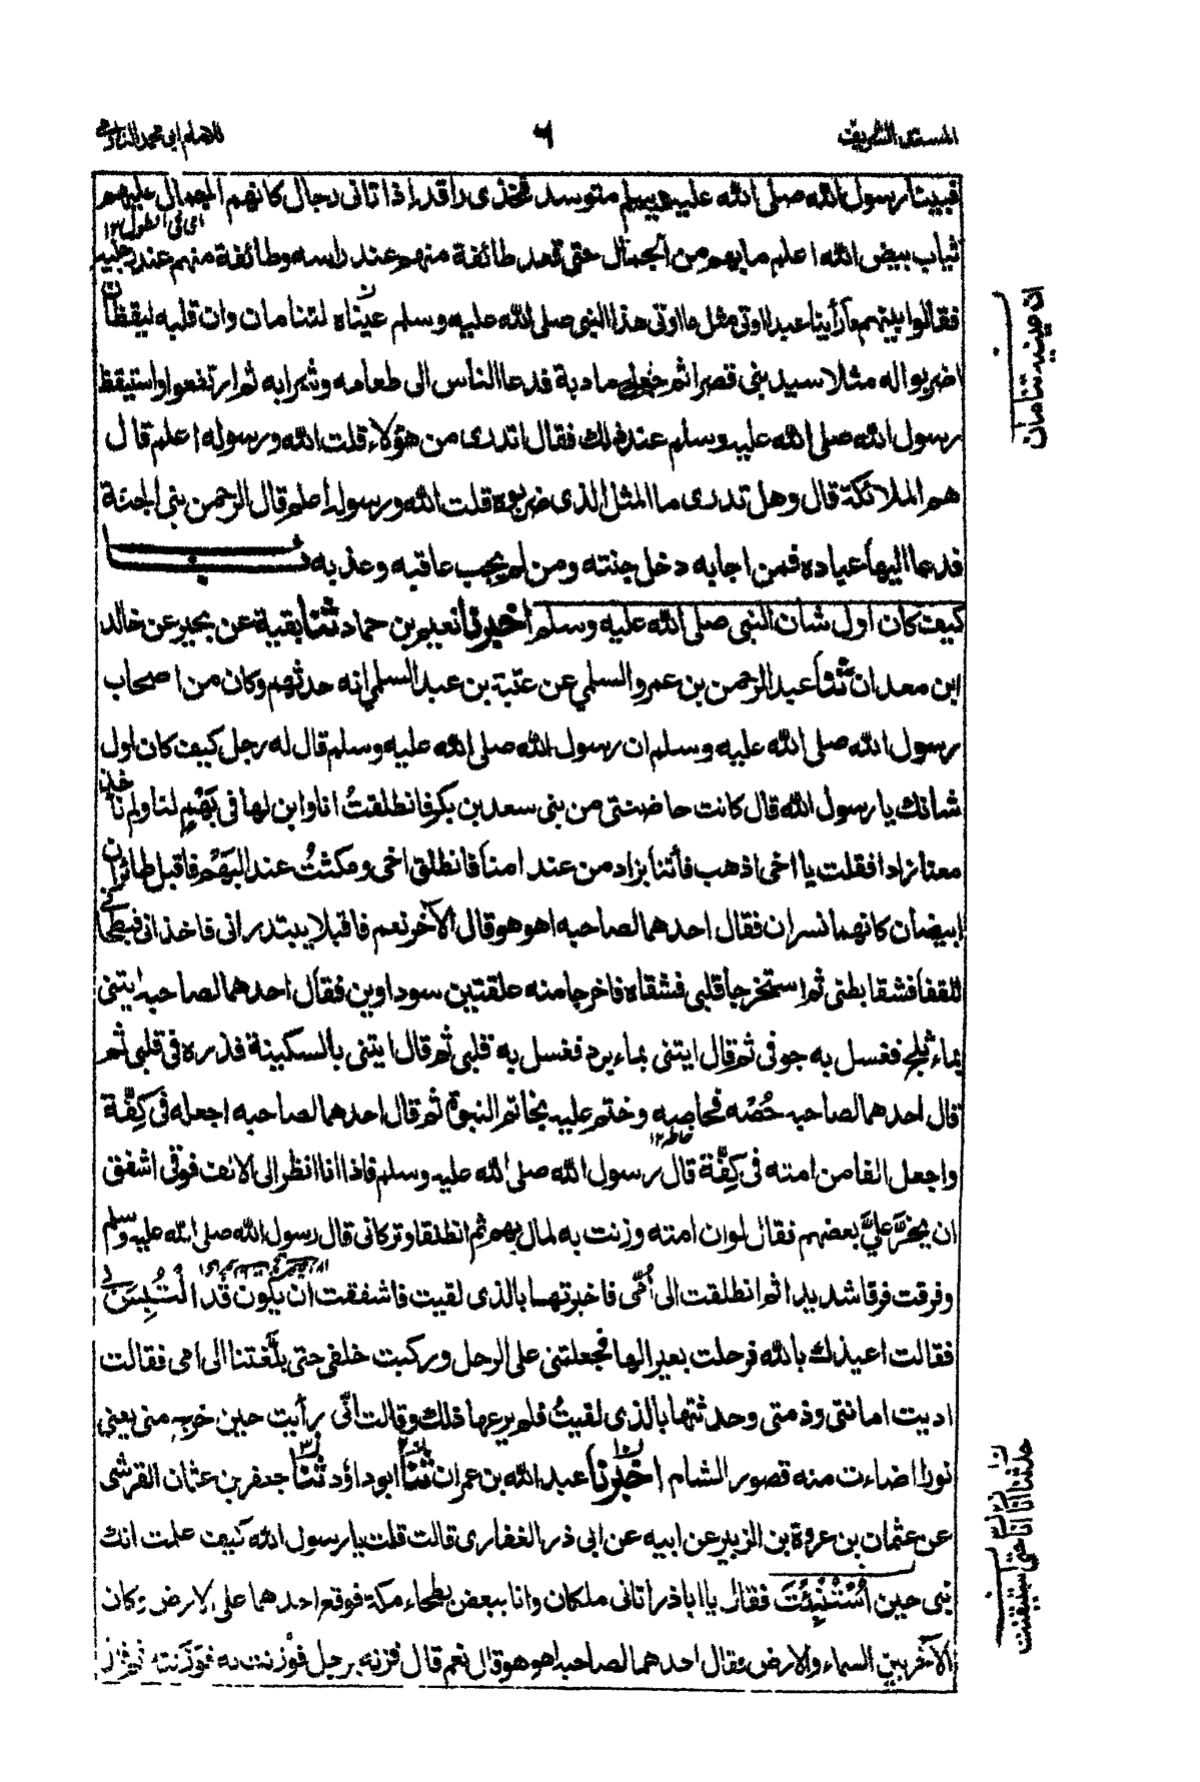 المسند الشريف
٦
للامام ابي محمد الدارمي
فبينا رسول الله صلى الله عليه وسلم متوسد فخذي راقد اذ اتاني رجال كانهم الجمال عليهم
ثياب بيض الله اعلم ما بهم من الجمال حتى قعد طائفة منهم عند راسه وطائفة منهم عند رجليه
فقالوا بينهم ما رأينا عبدا اوتي مثل ما اوتي هذا النبي صلى الله عليه وسلم عيناه لتنامان وان قلبه ليقظان
اضربوا له مثلا سيد بنى قصرا ثم جعل مادبة فدعا الناس الى طعامه وشرابه ثم ارتفعوا واستيقظ
رسول الله صلى الله عليه وسلم عند ذلك فقال اتدرى من هؤلاء قلت الله ورسوله اعلم قال
هم الملائكة قال وهل تدرى ما المثل الذى ضربوه قلت الله ورسوله اعلم قال الرحمن بنى الجنة
فدعا اليها عباده فمن اجابه دخل جنته ومن لم يجب عاقبه وعذبه باب
كيف كان اول شان النبي صلى الله عليه وسلم اخبرنا نعيم بن حماد ثنا بقية عن بحير عن خالد
ابن معدان ثنا عبد الرحمن بن عمرو السلمي عن عتبة بن عبد السلمي انه حدثهم وكان من اصحاب
رسول الله صلى الله عليه وسلم ان رسول الله صلى الله عليه وسلم قال له رجل كيف كان اول
شانك يا رسول الله قال كانت حاضنتي من بني سعد بن بكر فانطلقتُ انا وابن لها في بَهْمٍ لنا ولم ناخذ
معنا زادا فقلت يا اخي اذهب فأتنا بزاد من عند امنا فانطلق اخي ومكثتُ عند البَهْمِ فاقبل طائران
ابيضان كانهما نسران فقال احدهما لصاحبه اهو هو قال الآخر نعم فاقبلا يبتدراني فاخذاني فبطحاني
للقفا فشقا بطني ثم استخرجا قلبي فشقاه فاخرجا منه علقتين سوداوين فقال احدهما لصاحبه ايتني
بماء ثلج فغسل به جوفي ثم قال ايتني بماء برد فغسل به قلبي ثم قال ايتني بالسكينة فذره في قلبي ثم
قال احدهما لصاحبه حُصْه فحاصه وختم عليه بخاتم النبوة ثم قال احدهما لصاحبه اجعله في كِفّة
واجعل الفا من امته في كِفّة قال رسول الله صلى الله عليه وسلم فاذا انا انظر الى الالف فوقي اشفق
ان يخرَّ عليَّ بعضهم فقال لو ان امته وزنت به لمال بهم ثم انطلقا وتركاني قال رسول الله صلى الله عليه وسلم
وفرقت فرقا شديدا ثم انطلقت الى اُمّي فاخبرتها بالذي لقيت فاشفقت ان يكون قد الْتُبِسَ بي
فقالت اعيذك بالله فرحلت بعيرا لها فجعلتني على الرحل وركبت خلفي حتى بلغتنا الى امي فقالت
اديت امانتي وذمتي وحدثتها بالذي لقيتُ فلم يرعها ذلك وقالت انّي رأيت حين خرج مني يعني
نورا اضاءت منه قصور الشام اخبرنا عبد الله بن عمران ثنا ابو داؤد ثنا جعفر بن عثمان القرشى
عن عثمان بن عروة بن الزبير عن ابيه عن ابي ذر الغفارى قالت قلت يا رسول الله كيف علمت انك
نبى حين اُسْتُنْبِئْتَ فقال يا ابا ذر اتاني ملكان وانا ببعض بطحاء مكة فوقع احدهما على الارض وكان
الآخر بين السماء والارض فقال احدهما لصاحبه اهو هو قال نعم قال فزنه برجل فوُزنت به فوَزَنته ثم قال
ان عينيه تنامان